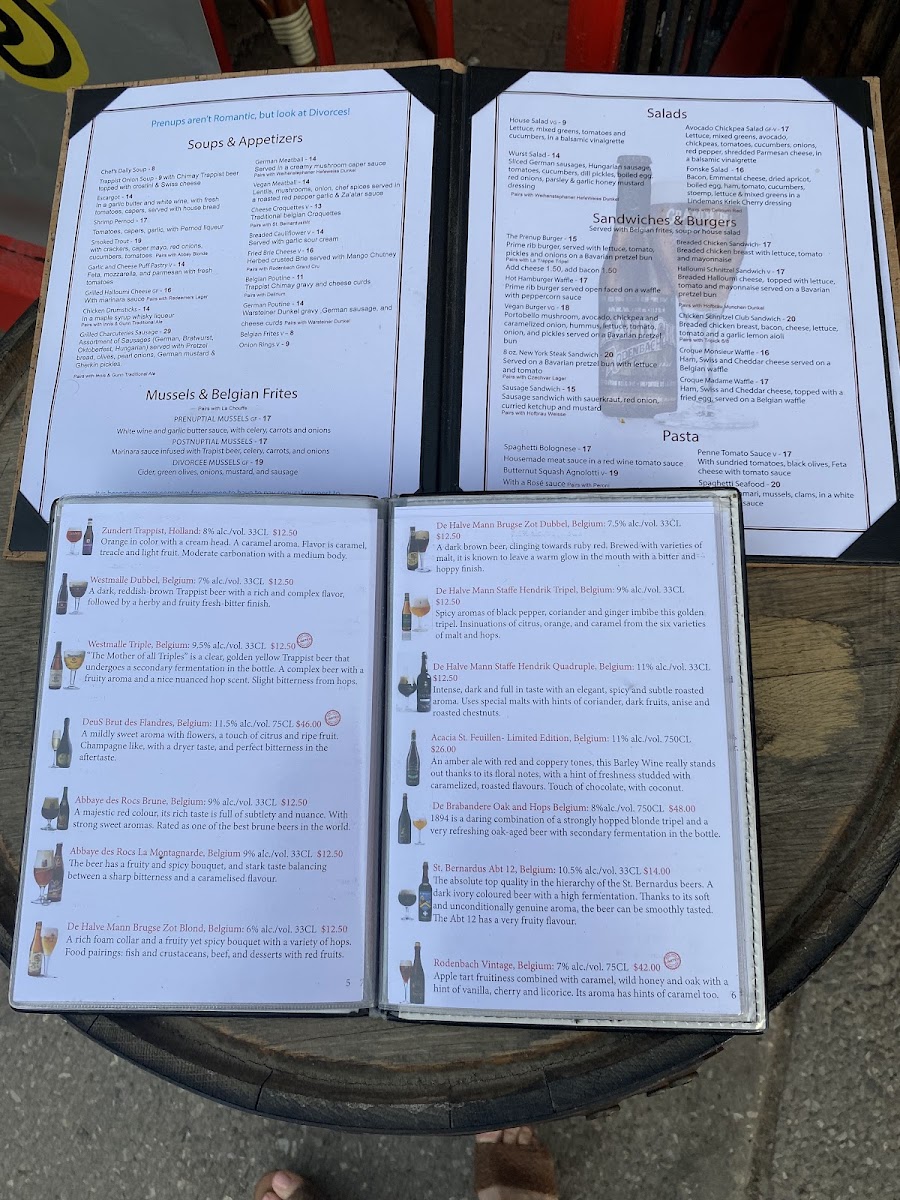 Prenups aren't Romantic, but look at Divorces!
Soups & Appetizers
Chef's Daily Soup - 8
Trappist Onion Soup - 9 with Chimay Trappist beer
topped with crostini & Swiss cheese
Escargot - 14
In a garlic butter and white wine, with fresh
tomatoes, capers, served with house bread
Shrimp Pernod - 17
Tomatoes, capers, garlic, with Pernod liqueur
Smoked Trout - 19
with crackers, caper mayo, red onions,
cucumbers, tomatoes Pairs with Abbey Blonde
Garlic and Cheese Puff Pastry V - 14
Feta, mozzarella, and parmesan with fresh
tomatoes
Grilled Halloumi Cheese GF - 16
With marinara sauce
Chicken Drumsticks - 14
In a maple syrup whisky liqueur
Pairs with Innis & Gunn Traditional Ale
Grilled Charcuteries Sausage - 29
Assortment of Sausages (German, Bratwurst,
Oktoberfest, Hungarian) served with Pretzel
bread, olives, pearl onions, German mustard &
Gherkin pickles
Pairs with Innis & Gunn Traditional Ale
German Meatball - 14
Served in a creamy mushroom-caper sauce
Pairs with Weihenstephaner Hefeweisse Dunkel
Vegan Meatball - 14
Lentils, mushrooms, onion, chef spices served in
a roasted red pepper garlic & Za'atar sauce
Cheese Croquettes V - 13
Traditional belgian Croquettes
Pairs with St. Bernardus Wit
Breaded Cauliflower V - 14
Served with garlic sour cream
Fried Brie Cheese V - 16
Herbed crusted Brie served with Mango Chutney
Pairs with Rodenbach Grand Cru
Belgian Poutine - 11
Trappist Chimay gravy and cheese curds
Pairs with Delirium
German Poutine - 14
Warsteiner Dunkel gravy ,German sausage, and
cheese curds Pairs with Warsteiner Dunkel
Belgian Frites V - 8
Onion Rings V - 9
Mussels & Belgian Frites
Pairs with La Chouffe
PRENUPTIAL MUSSELS GF - 17
White wine and garlic butter sauce, with celery, carrots and onions
POSTNUPTIAL MUSSELS - 17
Marinara sauce infused with Trapist beer, celery, carrots, and onions
DIVORCEE MUSSELS GF - 19
Cider, green olives, onions, mustard, and sausage
Salads
House Salad VG - 9
Lettuce, mixed greens, tomatoes and
cucumbers, in a balsamic vinaigrette
Wurst Salad - 14
Sliced German sausages, Hungarian sausage,
tomatoes, cucumbers, dill pickles, boiled egg,
red onions, parsley & garlic honey mustard
dressing
Pairs with Weihenstephaner Hefeweisse Dunkel
Avocado Chickpea Salad GF-V - 17
Lettuce, mixed greens, avocado,
chickpeas, tomatoes, cucumbers, onions,
red pepper, shredded Parmesan cheese, in
a balsamic vinaigrette
Fonske Salad - 16
Bacon, Emmental cheese, dried apricot,
boiled egg, ham, tomato, cucumbers,
stoemp, lettuce & mixed greens in a
Lindemans Kriek Cherry dressing
Sandwiches & Burgers
Served with Belgian frites, soup or house salad
The Prenup Burger - 15
Prime rib burger, served with lettuce, tomato,
pickles and onions on a Bavarian pretzel bun
Pairs with La Trappe Tripel
Add cheese 1.50, add bacon 1.50
Hot Hamburger Waffle - 17
Prime rib burger served open faced on a waffle
with peppercorn sauce
Vegan Burger VG - 18
Portobello mushroom, avocado, chickpea and
caramelized onion, hummus, lettuce, tomato,
onion, and pickles served on a Bavarian pretzel
bun
8 oz. New York Steak Sandwich - 20
Served on a Bavarian pretzel bun with lettuce
and tomato
Pairs with Czechvar Lager
Sausage Sandwich - 15
Sausage sandwich with sauerkraut, red onion,
curried ketchup and mustard
Pairs with Hofbrau Weisse
Breaded Chicken Sandwich- 17
Breaded chicken breast with lettuce, tomato
and mayonnaise
Halloumi Schnitzel Sandwich V - 17
Breaded Halloumi cheese, topped with lettuce,
tomato and mayonnaise served on a Bavarian
pretzel bun
Pairs with Hofbrau Munchen Dunkel
Chicken Schnitzel Club Sandwich - 20
Breaded chicken breast, bacon, cheese, lettuce,
tomato and a garlic lemon aioli
Croque Monsieur Waffle - 16
Ham, Swiss and Cheddar cheese served on a
Belgian waffle
Croque Madame Waffle - 17
Ham, Swiss and Cheddar cheese, topped with a
fried egg, served on a Belgian waffle
Pasta
Spaghetti Bolognese - 17
Housemade meat sauce in a red wine tomato sauce
Butternut Squash Agnolotti V- 19
With a Rosé sauce Pairs with Peroni
Penne Tomato Sauce V - 17
With sundried tomatoes, black olives, Feta
cheese with tomato sauce
Spaghetti Seafood - 20
mari, mussels, clams, in a white
sauce
Zundert Trappist, Holland: 8% alc./vol. 33CL $12.50
Orange in color with a cream head. A caramel aroma. Flavor is caramel,
treacle and light fruit. Moderate carbonation with a medium body.
Westmalle Dubbel, Belgium: 7% alc/vol. 33CL $12.50
A dark, reddish-brown Trappist beer with a rich and complex flavor,
followed by a herby and fruity fresh-bitter finish.
Westmalle Triple, Belgium: 9,5% alc./vol. 33CL $12.50
"The Mother of all Triples" is a clear, golden yellow Trappist beer that
undergoes a secondary fermentation in the bottle. A complex beer with a
fruity aroma and a nice nuanced hop scent. Slight bitterness from hops.
DeuS Brut des Flandres, Belgium: 11.5% alc./vol. 75CL $46.00
A mildly sweet aroma with flowers, a touch of citrus and ripe fruit.
Champagne like, with a dryer taste, and perfect bitterness in the
aftertaste.
Abbaye des Rocs Brune, Belgium: 9% alc/vol. 33CL $12.50
A majestic red colour, its rich taste is full of subtlety and nuance. With
strong sweet aromas. Rated as one of the best brune beers in the world.
Abbaye des Rocs La Montagnarde, Belgium 9% alc/vol. 33CL $12.50
The beer has a fruity and spicy bouquet, and stark taste balancing
between a sharp bitterness and a caramelised flavour.
De Halve Mann Brugse Zot Blond, Belgium: 6% alc./vol. 33CL $12.50
A rich foam collar and a fruity yet spicy bouquet with a variety of hops.
Food pairings: fish and crustaceans, beef, and desserts with red fruits.
5
De Halve Mann Brugse Zot Dubbel, Belgium: 7.5% alc./vol. 33CL
$12.50
A dark brown beer, clinging towards ruby red. Brewed with varieties of
malt, it is known to leave a warm glow in the mouth with a bitter and
hoppy finish.
De Halve Mann Staffe Hendrik Tripel, Belgium: 9% alc/vol. 33CL
$12.50
Spicy aromas of black pepper, coriander and ginger imbibe this golden
tripel. Insinuations of citrus, orange, and caramel from the six varieties
of malt and hops.
De Halve Mann Staffe Hendrik Quadruple, Belgium: 11% alc/vol. 33CL
$12.50
Intense, dark and full in taste with an elegant, spicy and subtle roasted
aroma. Uses special malts with hints of coriander, dark fruits, anise and
roasted chestnuts.
Acacia St. Feuillen- Limited Edition, Belgium: 11% alc./vol. 750CL
$26.00
An amber ale with red and coppery tones, this Barley Wine really stands
out thanks to its floral notes, with a hint of freshness studded with
caramelized, roasted flavours. Touch of chocolate, with coconut.
De Brabandere Oak and Hops Belgium: 8%alc/vol. 750CL $48.00
1894 is a daring combination of a strongly hopped blonde tripel and a
very refreshing oak-aged beer with secondary fermentation in the bottle.
St. Bernardus Abt 12, Belgium: 10.5% alc./vol. 33CL $14.00
The absolute top quality in the hierarchy of the St. Bernardus beers. A
dark ivory coloured beer with a high fermentation. Thanks to its soft
and unconditionally genuine aroma, the beer can be smoothly tasted.
The Abt 12 has a very fruity flavour.
Rodenbach Vintage, Belgium: 7% alc/vol. 75CL $42.00
Apple tart fruitiness combined with caramel, wild honey and oak with a
hint of vanilla, cherry and licorice. Its aroma has hints of caramel too.
6